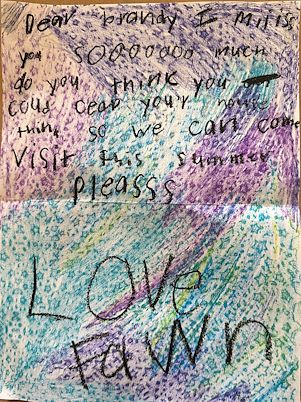 Dear brandy I Miiss
you soooooooo much
do you think you
coud ceap your house
thing so we can come
Visit this summer
pleasss
LOVe
FaWn